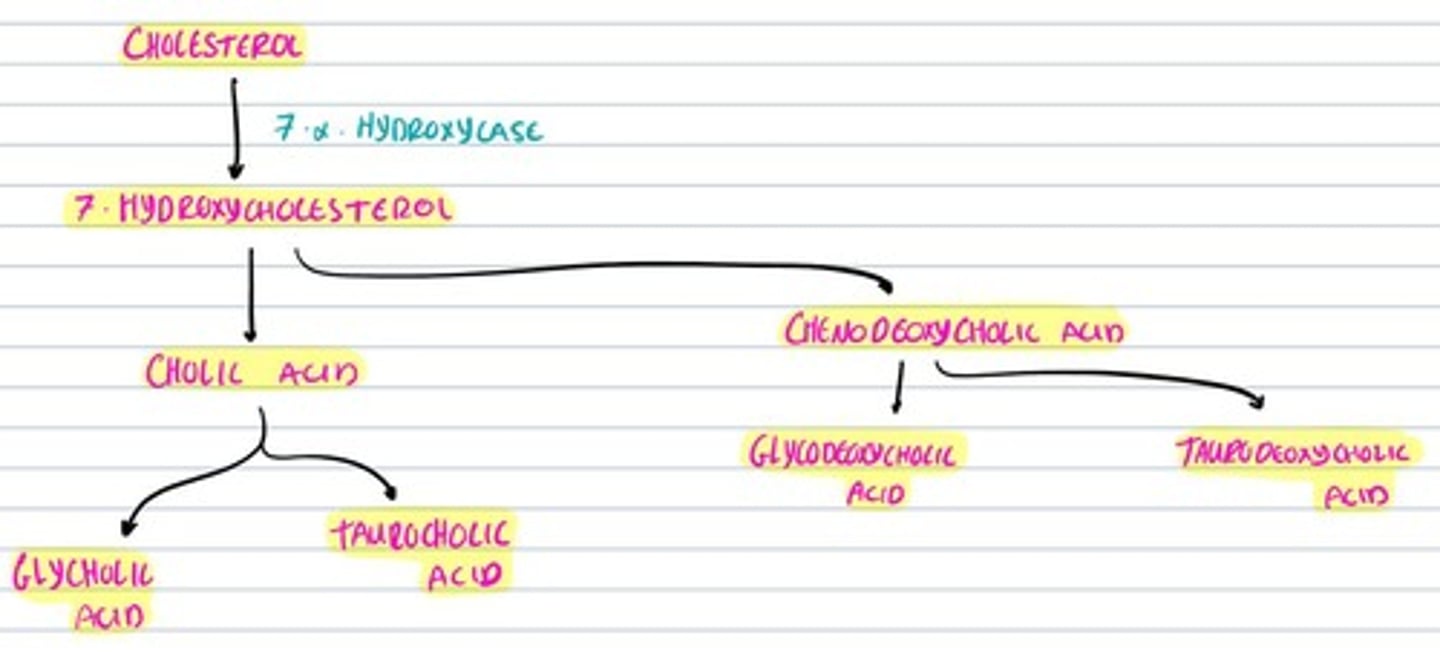 CHOLESTEROL
7·α· HYDROXYCASE
7·HYDROXYCHOLESTEROL
CHENODEOXYCHOLIC ACID
CHOLIC ACID
GLYCODEOXYCHOLIC
ACID
TAURODEOXYCHOLIC
ACID
TAUROCHOLIC
ACID
GLYCHOLIC
ACID